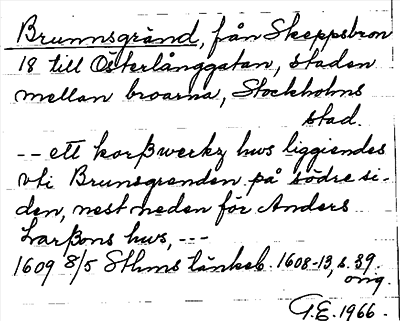 Brunnsgränd, från Skeppsbron
18 till Österlånggatan, staden
mellan broarna, Stockholms
stad.
-- ett korßwerkz hws liggiendes
vti Brunsgrenden på södre si-
den, nest neden för Anders
Larßons hws, ---
1609 8/5 Sthms tänkeb. 1608-13, s. 39.
orig.
G.E. 1966.